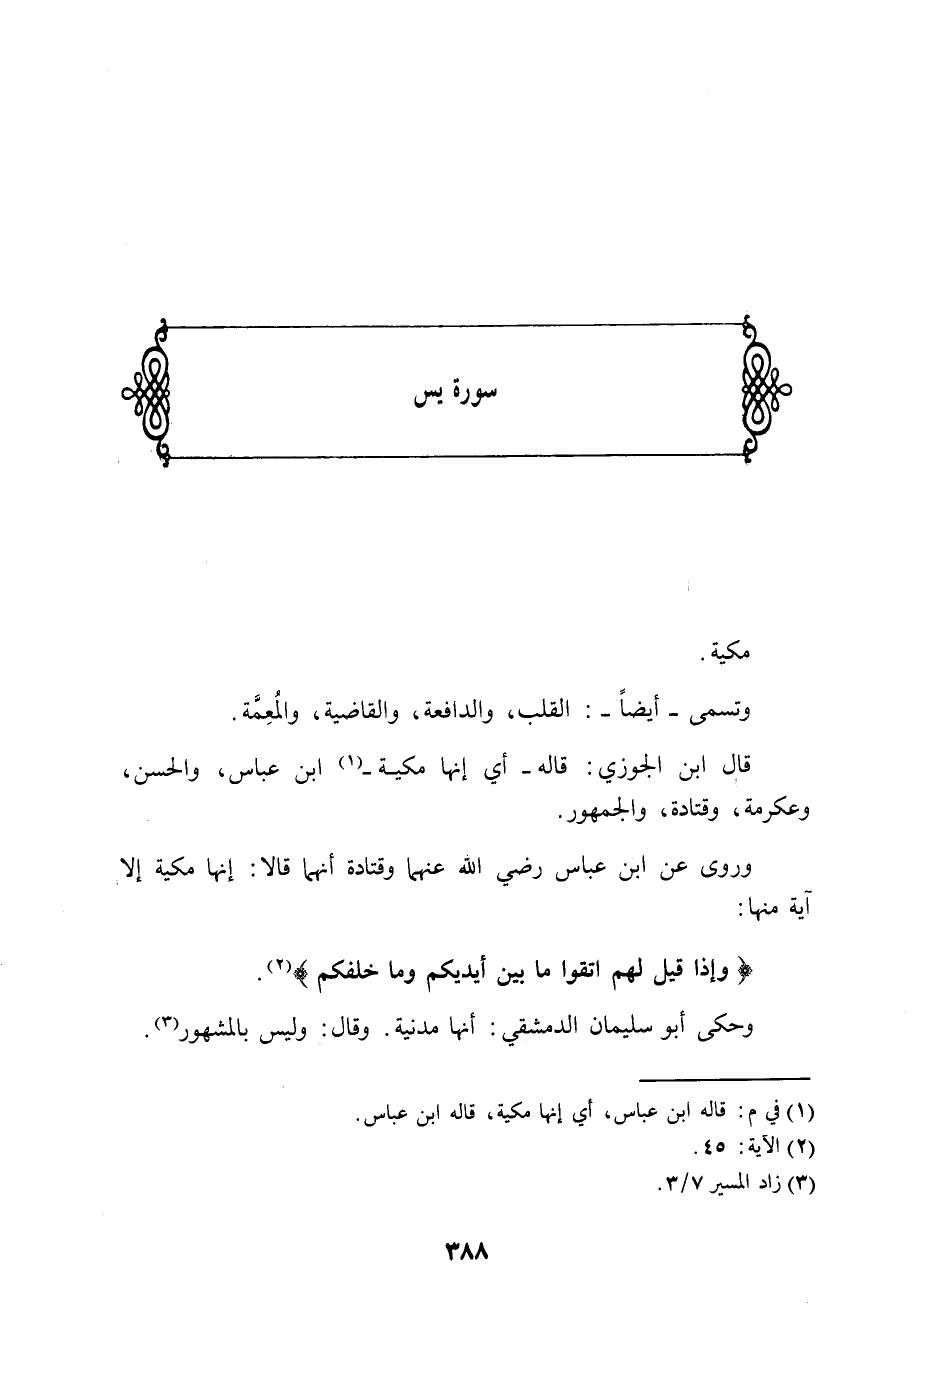 سورة يس
مكية .
وتسمى ـ أيضاً ـ : القلب، والدافعة، والقاضية، والمُعِمَّة .
قال ابن الجوزي : قاله ـ أي إنها مكيـة ـ(١) ابن عباس، والحسن،
وعكرمة، وقتادة، والجمهور .
وروى عن ابن عباس رضي الله عنهما وقتادة أنهما قالا : إنها مكية إلا
آية منها :
﴿ وإذا قيل لهم اتقوا ما بين أيديكم وما خلفكم ﴾(٢) .
وحكى أبو سليمان الدمشقي : أنها مدنية . وقال : وليس بالمشهور(٣) .
(١) في م : قاله ابن عباس، أي إنها مكية، قاله ابن عباس .
(٢) الآية : ٤٥ .
(٣) زاد المسير ٣/٧ .
٣٨٨